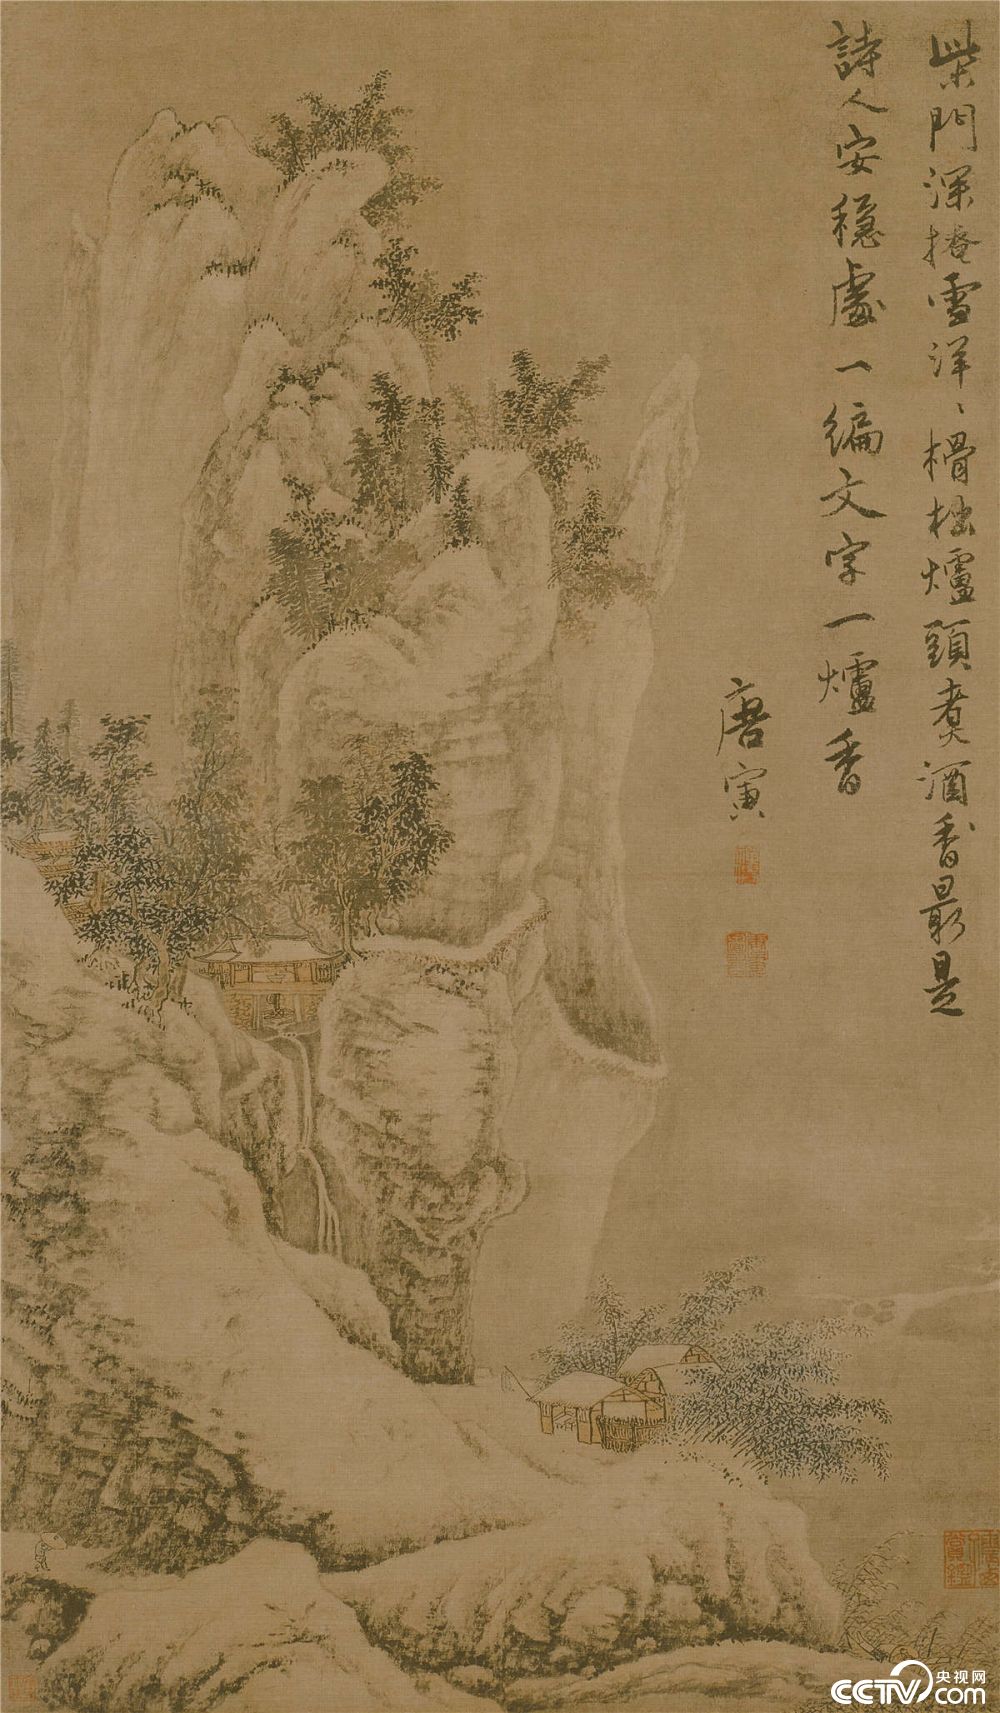 柴門深掩雪洋〻榾柮爐頭煑酒香最是
詩人安穩處一編文字一爐香
唐寅
CCTV 央视网
com